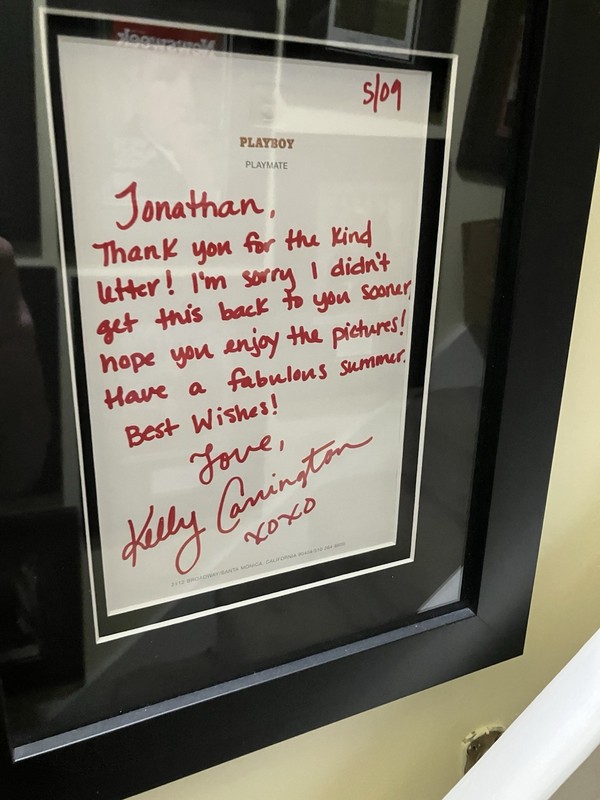 Newsweek
5/09
PLAYBOY
PLAYMATE
Jonathan,
Thank you for the kind
letter! I'm sorry I didn't
get this back to you sooner,
hope you enjoy the pictures!
Have a fabulous summer.
Best Wishes!
Love,
Kelly Carrington
xoxo
2112 BROADWAY/SANTA MONICA, CALIFORNIA